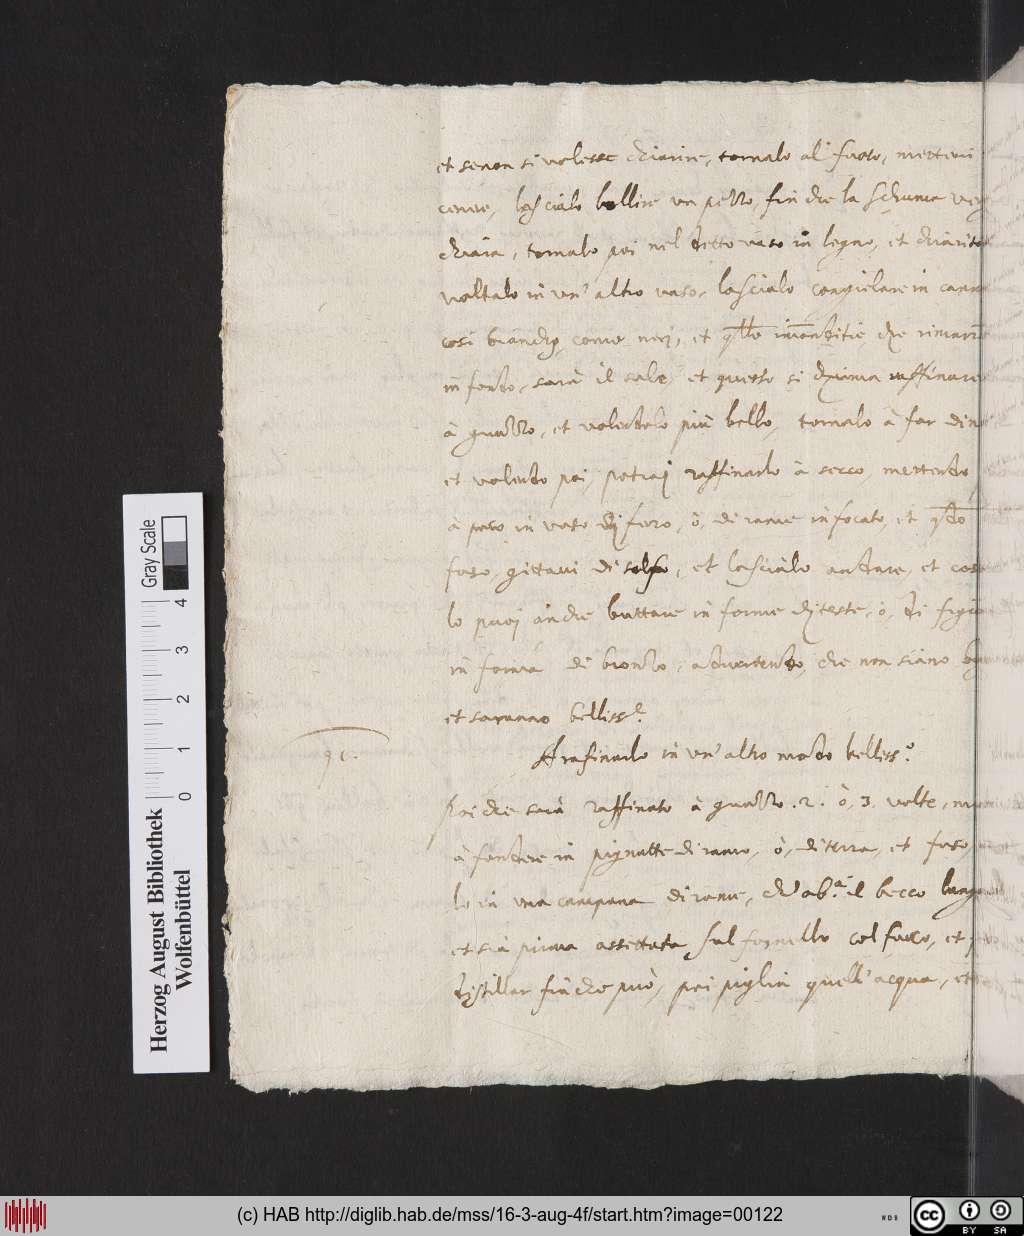 et se non si volesse chiarire, tornalo al fuoco, mettevi
cenere, lascialo bollire un pezzo, fin che la schuma
chiara, tornalo poi nel detto vaso in legno, et chiarito
voltalo in un' altro vaso, lascialo congielare in
cosi bianchi, come neri, et q.llo che
in fondo, sarà il sale, et questo si chiama raffinare
à guazzo, et volendolo più bello, tornalo à far
et volendo poi, potrai raffinarlo à secco, mettendo
à poco in vaso di ferro, ò, di rame infocato, et q.do
fuso, gittavi di solfo, et lascialo andare, et cosi
lo puoi anche buttare in forme di teste, ò, di
in forma di bronzo, advertendo, che non siano
et saranno belliss.e
A rafinarlo in un' altro modo belliss.o
91.
Poi che sarà raffinato à guazzo .2. ò, 3. volte,
à fondere in pignatte di rame, ò, di terra, et fuso,
lo in una campana di rame, ch' ab.a il becco lungo
et sia prima assettata sul fornello col fuoco, et
distillar fin che può, poi piglia quell' acqua, et
Herzog August Bibliothek
Wolfenbüttel
Gray Scale
0 1 2 3 4
(c) HAB http://diglib.hab.de/mss/16-3-aug-4f/start.htm?image=00122
WDB
cc BY SA